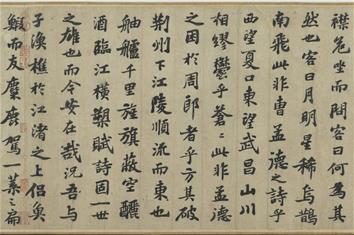 襟危坐而問客曰何為其
然也客曰月明星稀烏鵲
南飛此非曹孟德之詩乎
西望夏口東望武昌山川
相繆鬱乎蒼蒼此非孟德
之困於周郎者乎方其破
荊州下江陵順流而東也
舳艫千里旌旗蔽空釃
酒臨江橫槊賦詩固一世
之雄也而今安在哉況吾與
子漁樵於江渚之上侶魚
鰕而友麋鹿駕一葉之扁